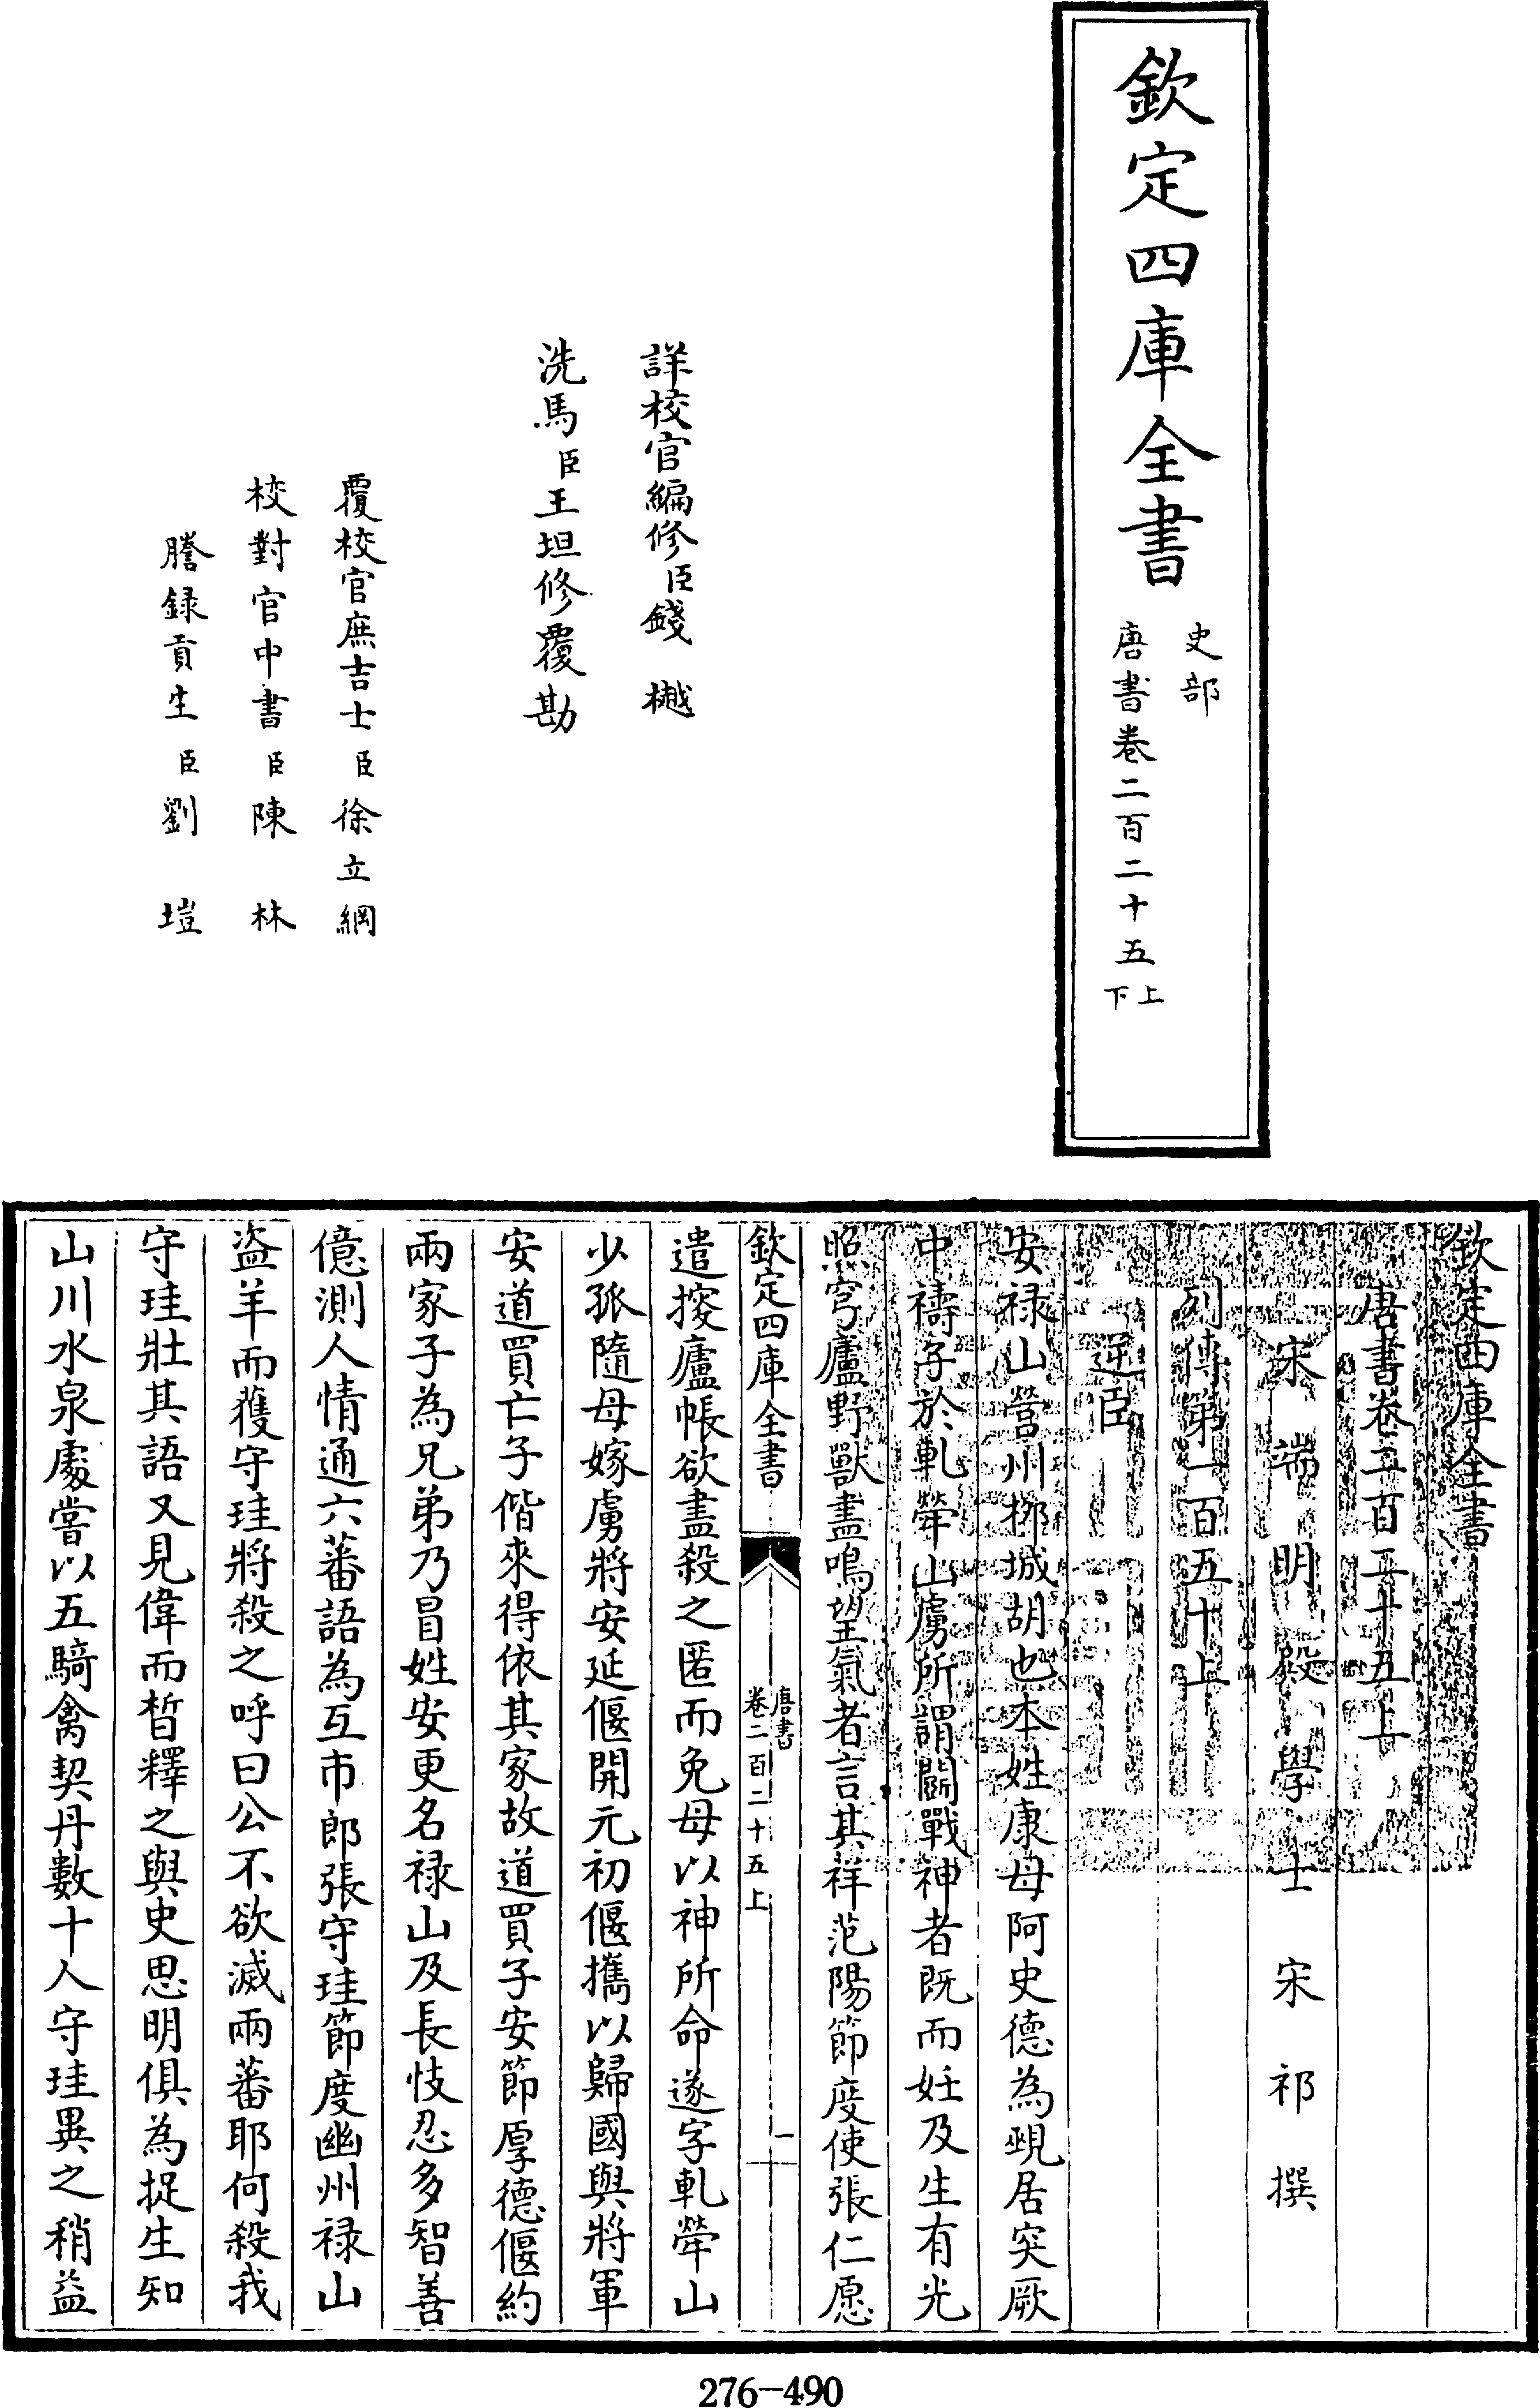 欽定四庫全書
史部
唐書卷二百二十五上下
詳校官編修臣錢樾
洗馬臣王坦修覆勘
覆校官庶吉士臣徐立綱
校對官中書臣陳林
謄録貢生臣劉塏
欽定四庫全書
唐書卷二百二十五上
宋端明殿學士宋祁撰
列傳第一百五十上
逆臣
安禄山營州栁城胡也本姓康母阿史德為覡居突厥
中禱子於軋犖山虜所謂鬭戰神者既而妊及生有光
照穹廬野獸盡鳴望氣者言其祥范陽節度使張仁愿
欽定四庫全書
唐書
卷二百二十五上
一
遣搜廬帳欲盡殺之匿而免母以神所命遂字軋犖山
少孤隨母嫁虜將安延偃開元初偃攜以歸國與將軍
安道買亡子偕來得依其家故道買子安節厚德偃約
兩家子為兄弟乃冒姓安更名禄山及長忮忍多智善
億測人情通六蕃語為互市郎張守珪節度幽州禄山
盜羊而獲守珪將殺之呼曰公不欲滅兩蕃耶何殺我
守珪壯其語又見偉而晳釋之與史思明俱為捉生知
山川水泉處嘗以五騎禽契丹數十人守珪異之稍益
276-490